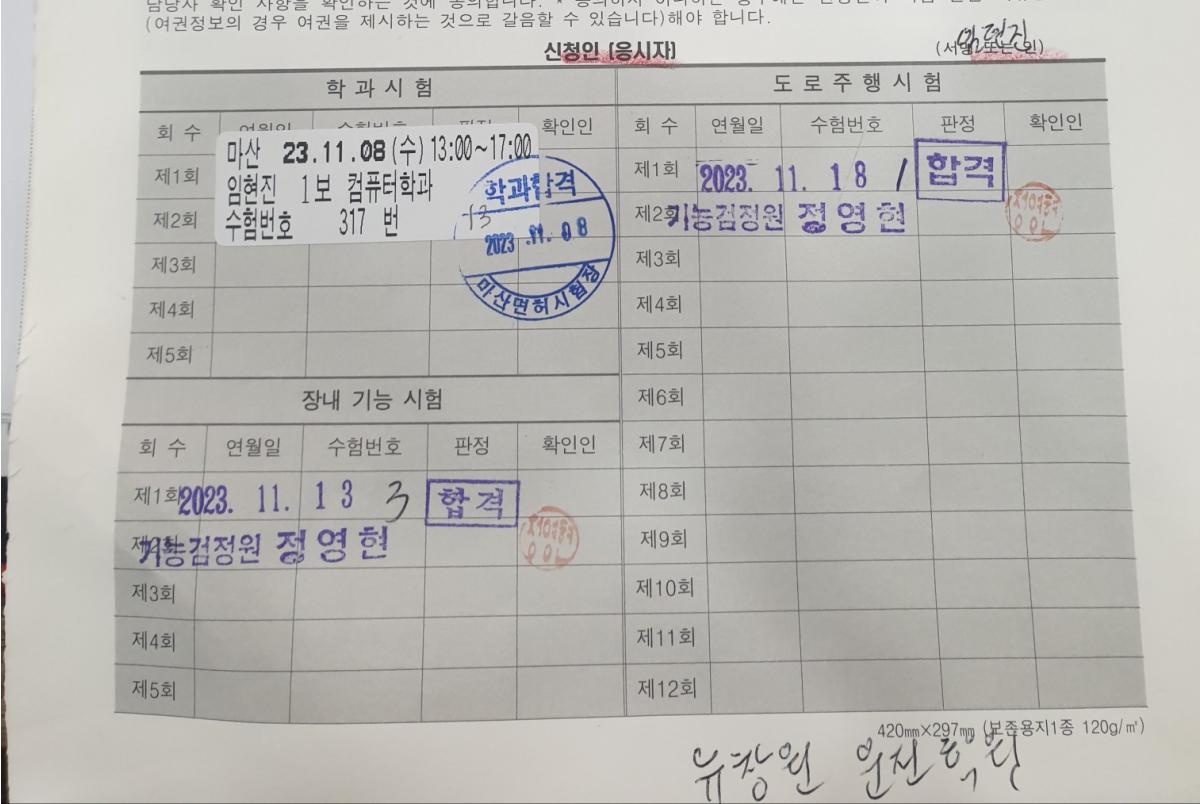 담당자 확인 사항을 확인하는 것에 동의합니다. * 동의하지
(여권정보의 경우 여권을 제시하는 것으로 갈음할 수 있습니다)해야 합니다.
임현진
신청인 (응시자)
(서명 또는 인)
학 과 시 험
회 수 연월일 수험번호 판정 확인인
마산 23.11.08(수) 13:00~17:00
임현진 1보 컴퓨터학과
수험번호 317 번
학과합격
2023 .11. 08
마산면허시험장
73
제1회
제2회
제3회
제4회
제5회
장내 기능 시험
회 수 연월일 수험번호 판정 확인인
제1회 2023. 11. 13 3 합격
제2회 기능검정원 정영현
제3회
제4회
제5회
도 로 주 행 시 험
회 수 연월일 수험번호 판정 확인인
제1회 2023. 11. 18 / 합격
제2회 기능검정원 정영현
제3회
제4회
제5회
제6회
제7회
제8회
제9회
제10회
제11회
제12회
420㎜×297㎜ (보존용지1종 120g/㎡)
뉴창원 운전학원